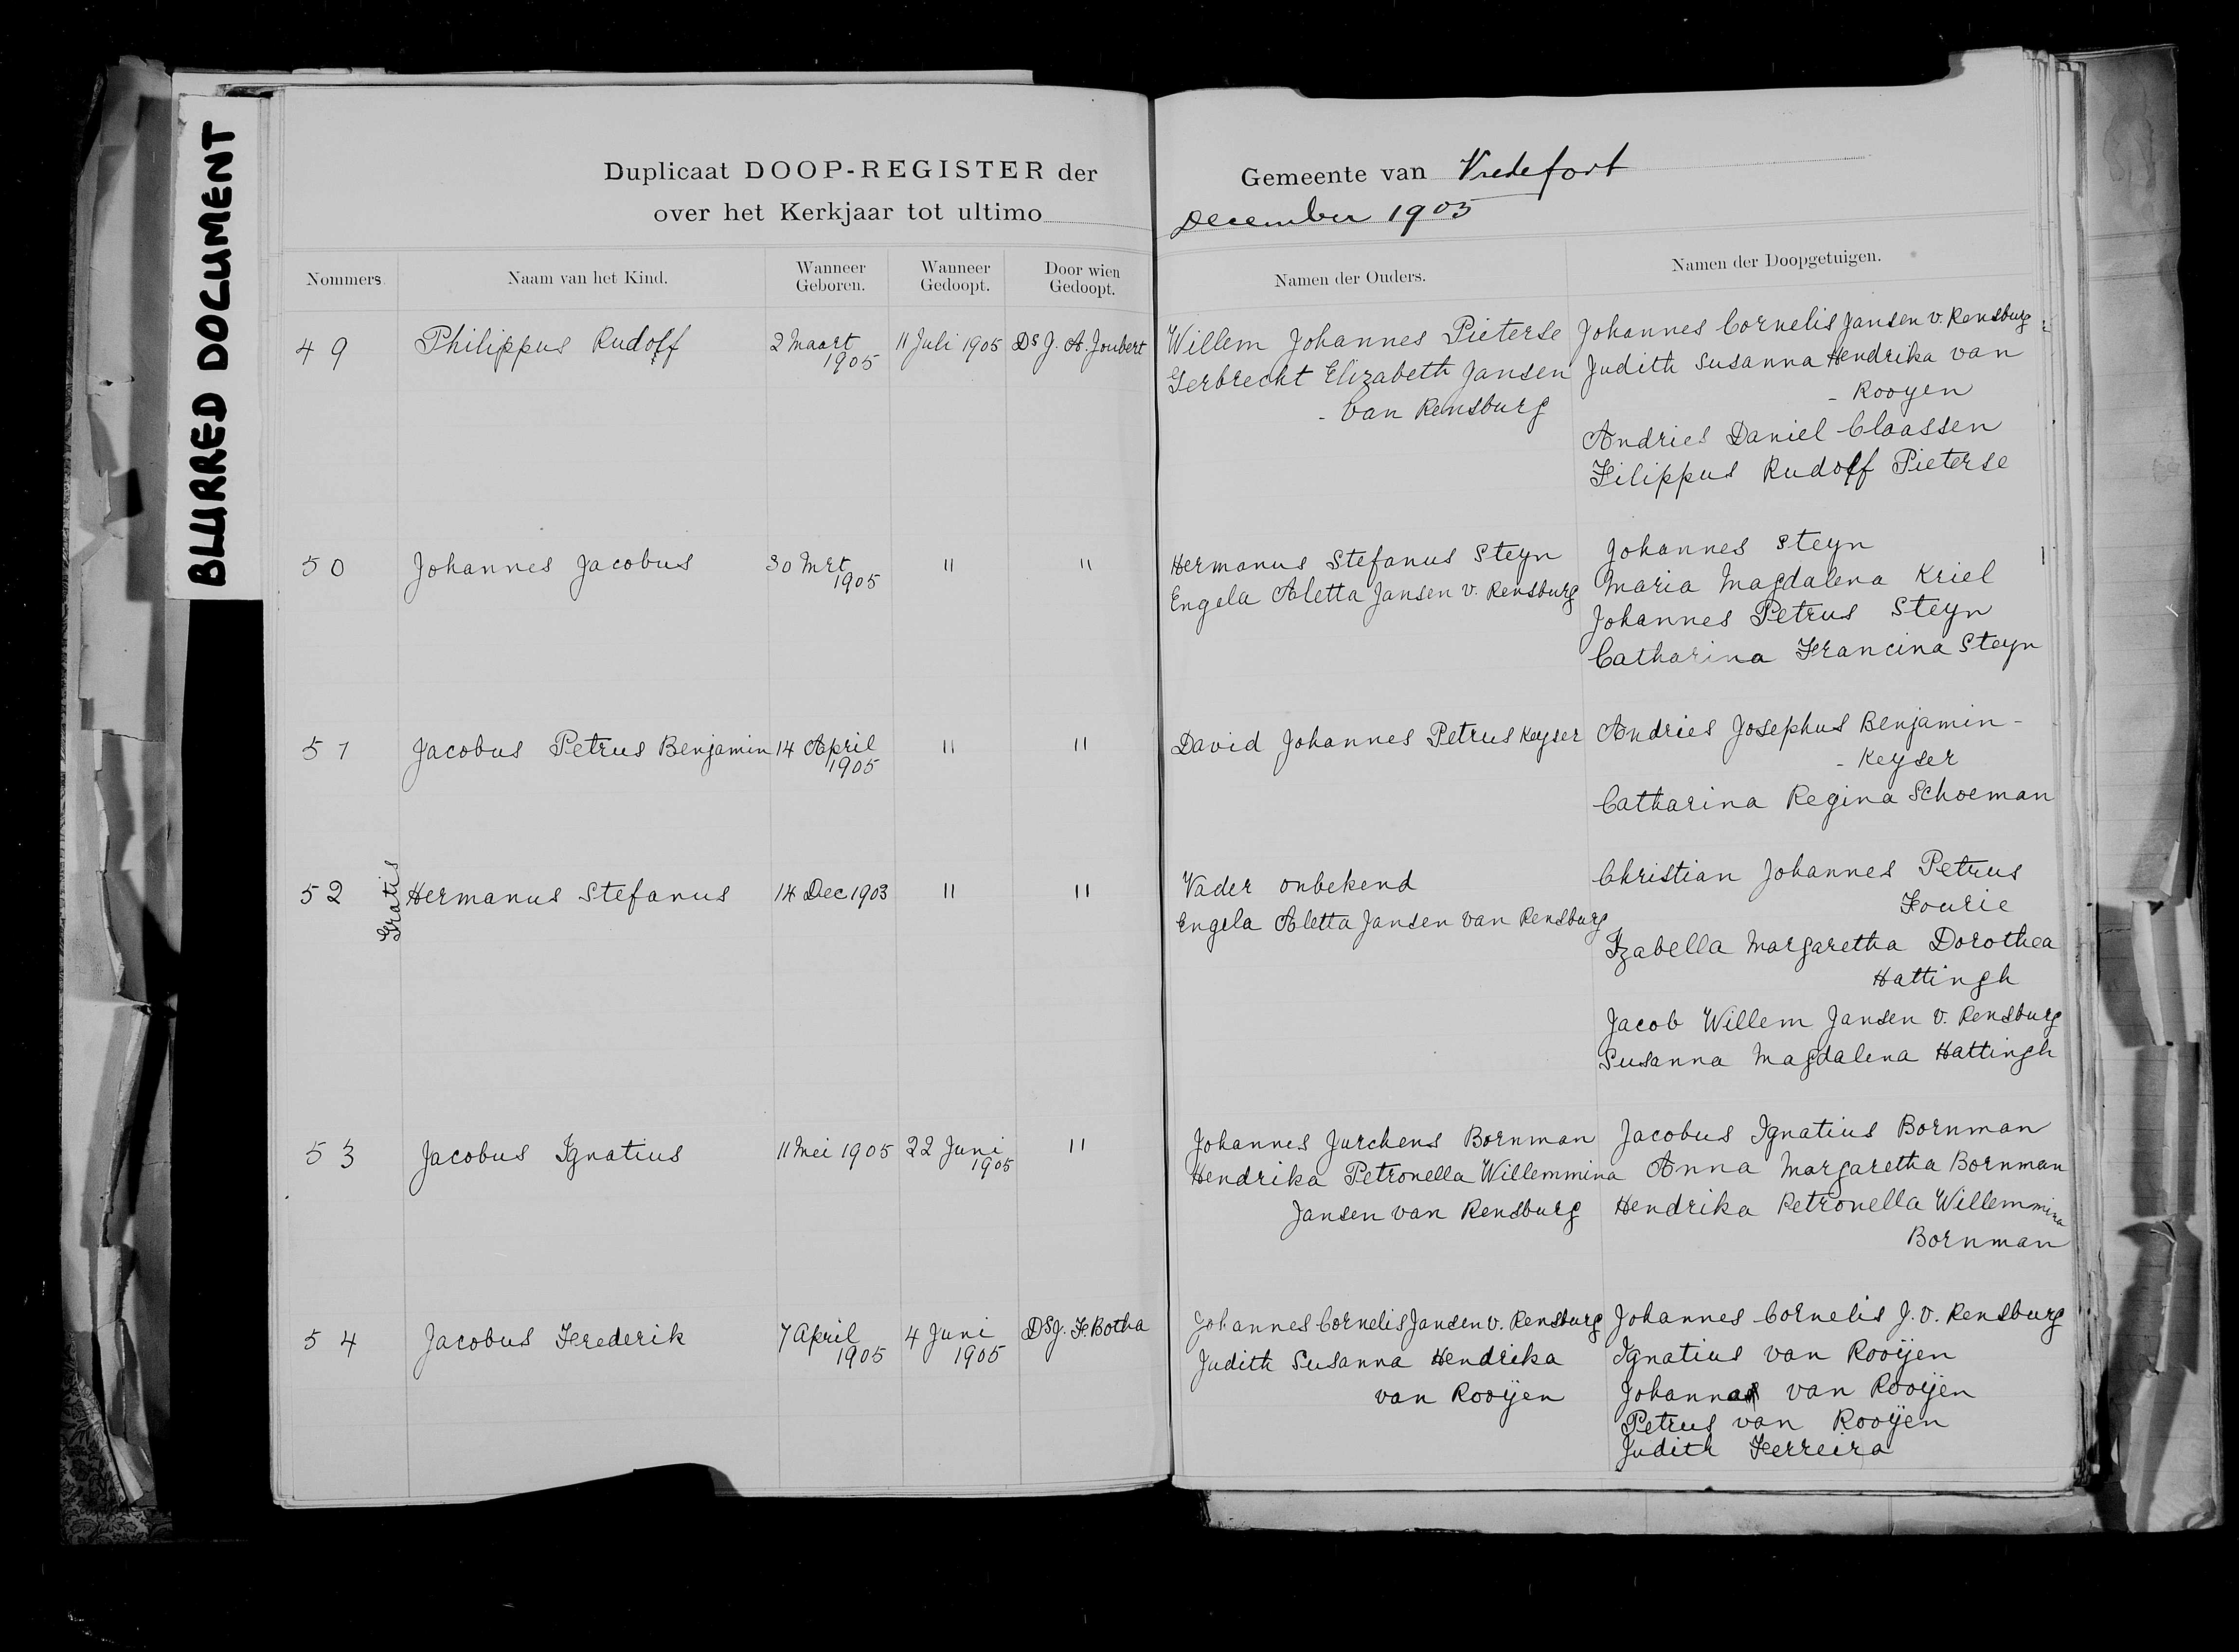 BLURRED DOCUMENT
Duplicaat DOOP-REGISTER der Gemeente van Vredefort
over het Kerkjaar tot ultimo December 1905
Nommers. Naam van het Kind. Wanneer Geboren. Wanneer Gedoopt. Door wien Gedoopt. Namen der Ouders. Namen der Doopgetuigen.
49 Philippus Rudolf 2 Maart 1905 11 Juli 1905 Ds J. A. Joubert Willem Johannes Pieterse Johannes Cornelis Jansen v. Rensburg
Gerbrecht Elizabeth Jansen Judith Susanna Hendrika van
- van Rensburg - Rooyen
Andries Daniel Claassen
Filippus Rudolf Pieterse
50 Johannes Jacobus 30 Mrt 1905 " " Hermanus Stefanus Steyn Johannes Steyn
Engela Aletta Jansen v. Rensburg Maria Magdalena Kriel
Johannes Petrus Steyn
Catharina Francina Steyn
51 Jacobus Petrus Benjamin 14 April 1905 " " David Johannes Petrus Keyser Andries Josephus Benjamin -
- Keyser
Catharina Regina Schoeman
52 Gratis Hermanus Stefanus 14 Dec 1903 " " Vader onbekend Christian Johannes Petrus
Fourie
Engela Aletta Jansen van Rensburg
Izabella Margaretha Dorothea
Hattingh
Jacob Willem Jansen v. Rensburg
Susanna Magdalena Hattingh
53 Jacobus Ignatius 11 Mei 1905 22 Juni 1905 " Johannes Jurchens Bornman Jacobus Ignatius Bornman
Hendrika Petronella Willemmina Anna Margaretha Bornman
Jansen van Rensburg Hendrika Petronella Willemmina
Bornman
54 Jacobus Frederik 7 April 1905 4 Juni 1905 Ds J. F. Botha Johannes Cornelis Jansen v. Rensburg Johannes Cornelis J. v. Rensburg
Judith Susanna Hendrika Ignatius van Rooijen
van Rooijen Johanna van Rooijen
Petrus van Rooijen
Judith Ferreira